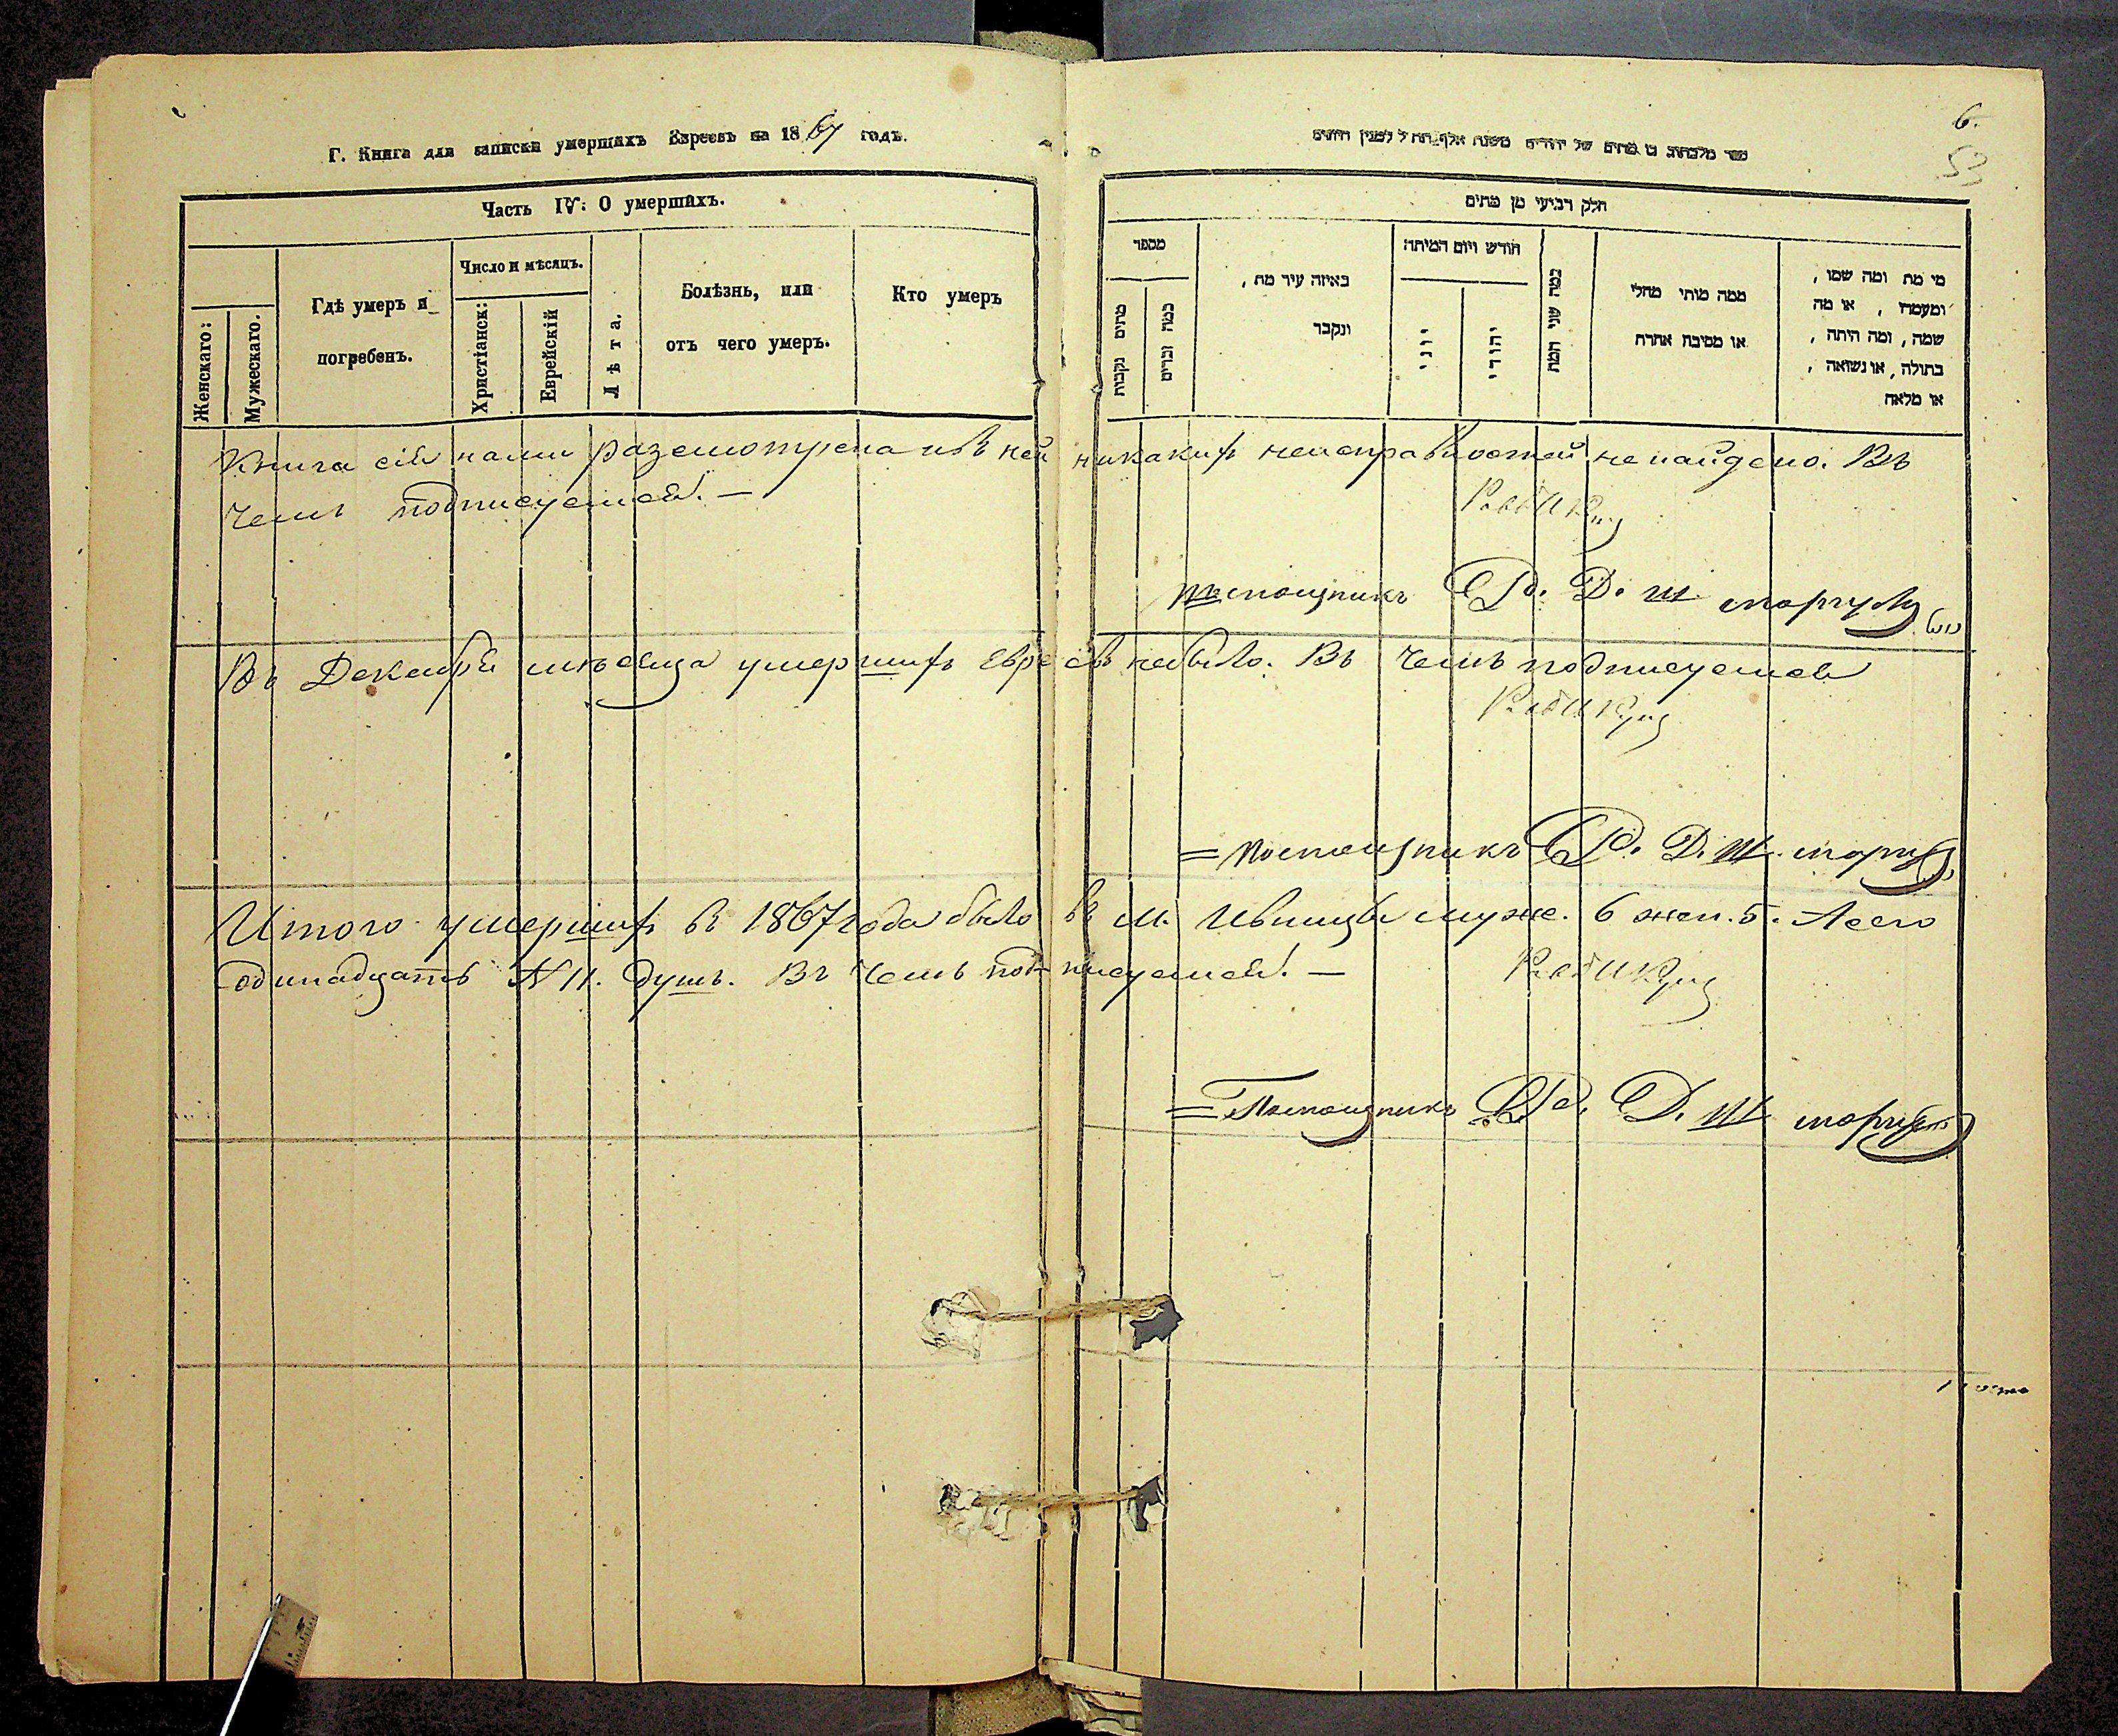 Г. Книга для записки умершихъ Евреевъ на 1867 годъ.
Часть IV. О умершихъ.
Женскаго:
Мужескаго.
Гдѣ умеръ и
погребенъ.
Число и мѣсяцъ.
Христіанск:
Еврейскій
Лѣта.
Болѣзнь, или
отъ чего умеръ.
Кто умеръ
6.
53
חלק רביעי מן מתים
מספר
מתים נקבות
כמה זכרים
באיזה עיר מת,
ונקבר
חודש ויום המיתה:
יוני
יהודי
כמה שני המת
ממה מותי מחלי
או מסיבה אחרת
מי מת ומה שמו,
ומעמדו, או מה
שמה, ומה היתה,
בתולה, או נשואה,
או מלאה
Книга сія нами разсмотрена и въ ней никакихъ неисправностей не найдено. Въ
чемъ подписуемся. —
Помощникъ Р. Д. Ш
Въ Декабрѣ мѣсяца умершихъ евреевъ небыло. Въ чемъ подписуемся
= Помощникъ Р. Д. Ш.
Итого умершихъ въ 1867 года было въ м. Ивницѣ муже. 6 жен. 5.
одинадцать N 11. душъ. Въ чемъ подписуемся. —
= Помощникъ Р. Д. Ш